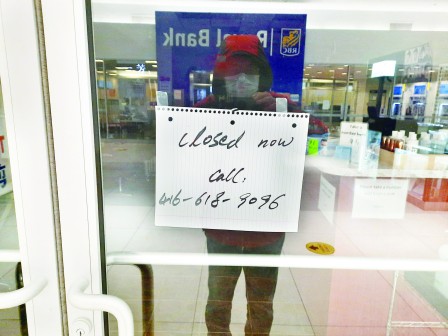 Royal Bank
RBC
closed now
call.
416-618-9096